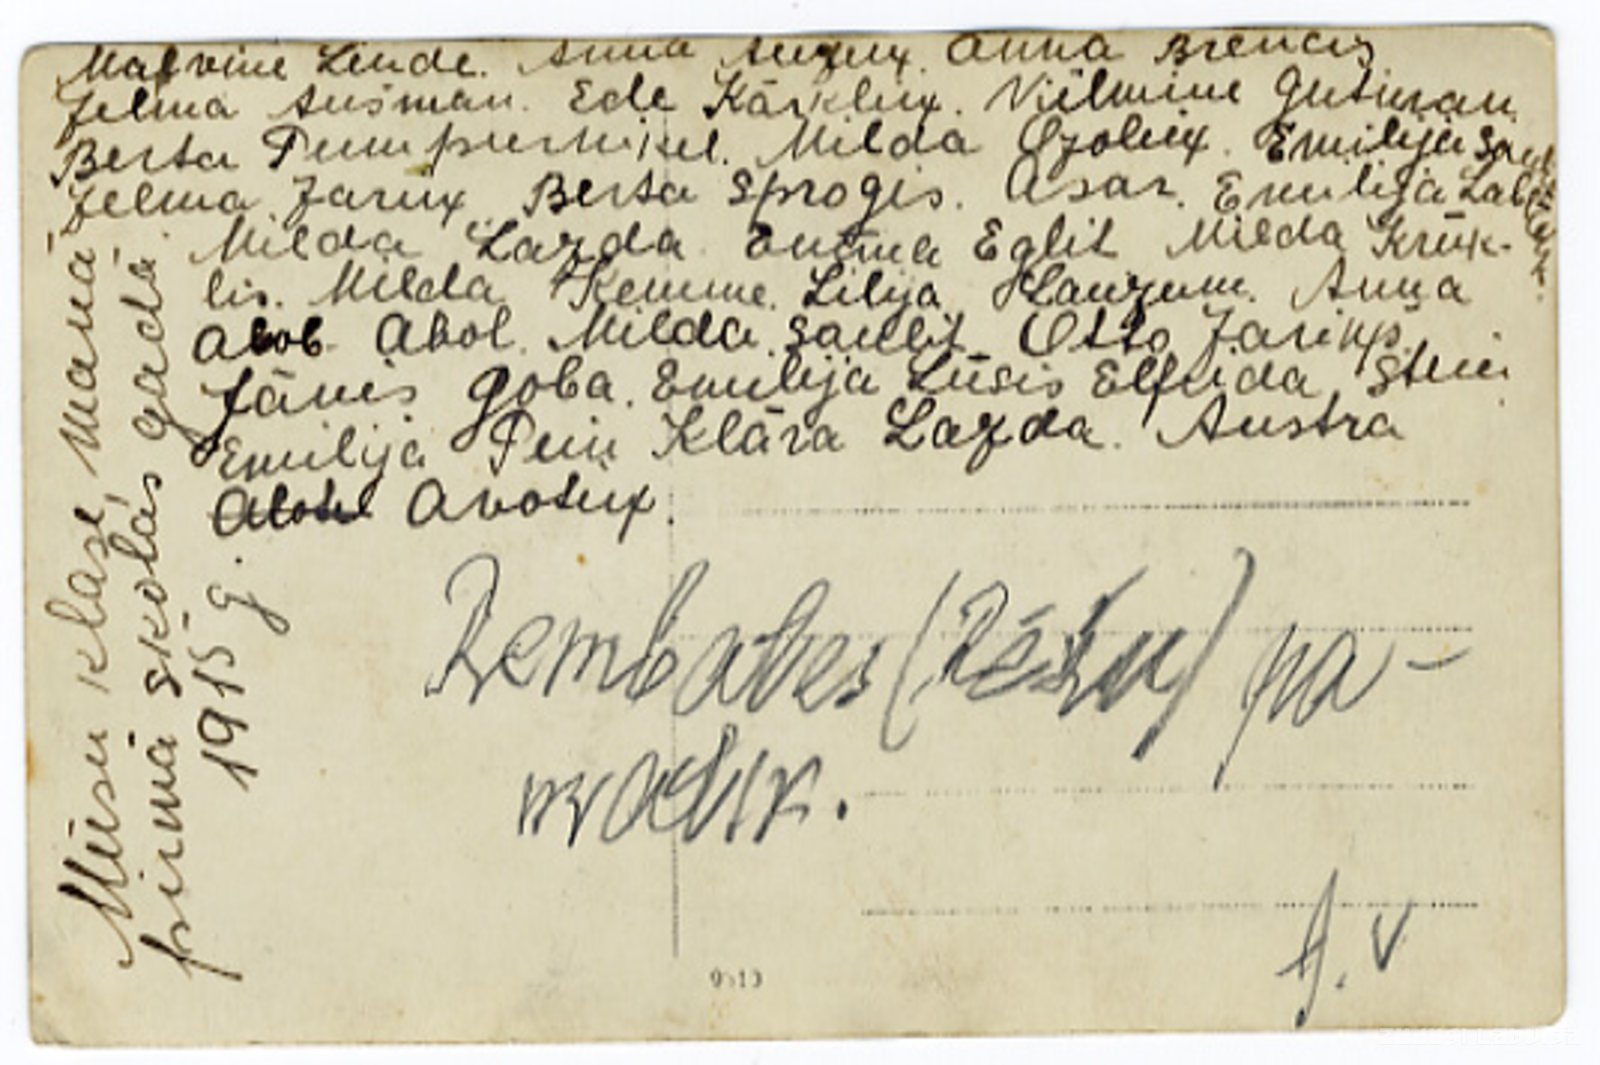 Malvine Linde. Anna Anna Brencis
Zelma Ausman. Ede Kārkliņ. Vilmine Gutman
Berta Pumpurnikel. Milda Ozoliņ. Emilija
Zelma Zariņ Berta Sproģis. Asar. Emilija
Milda Lazda Emma Eglit Milda Krūk-
lis. Milda Kemme. Lilija Anna
Abol. Milda Saulit Otto Zariņš
Jānis Goba. Emilija Lūsis Elfrida
Emilija Klāra Lazda. Austra
Avotiņ.
Mūsu klase, manā
pirmā skolas gadā
1915 g.
Rembates pa-
A. V
9513